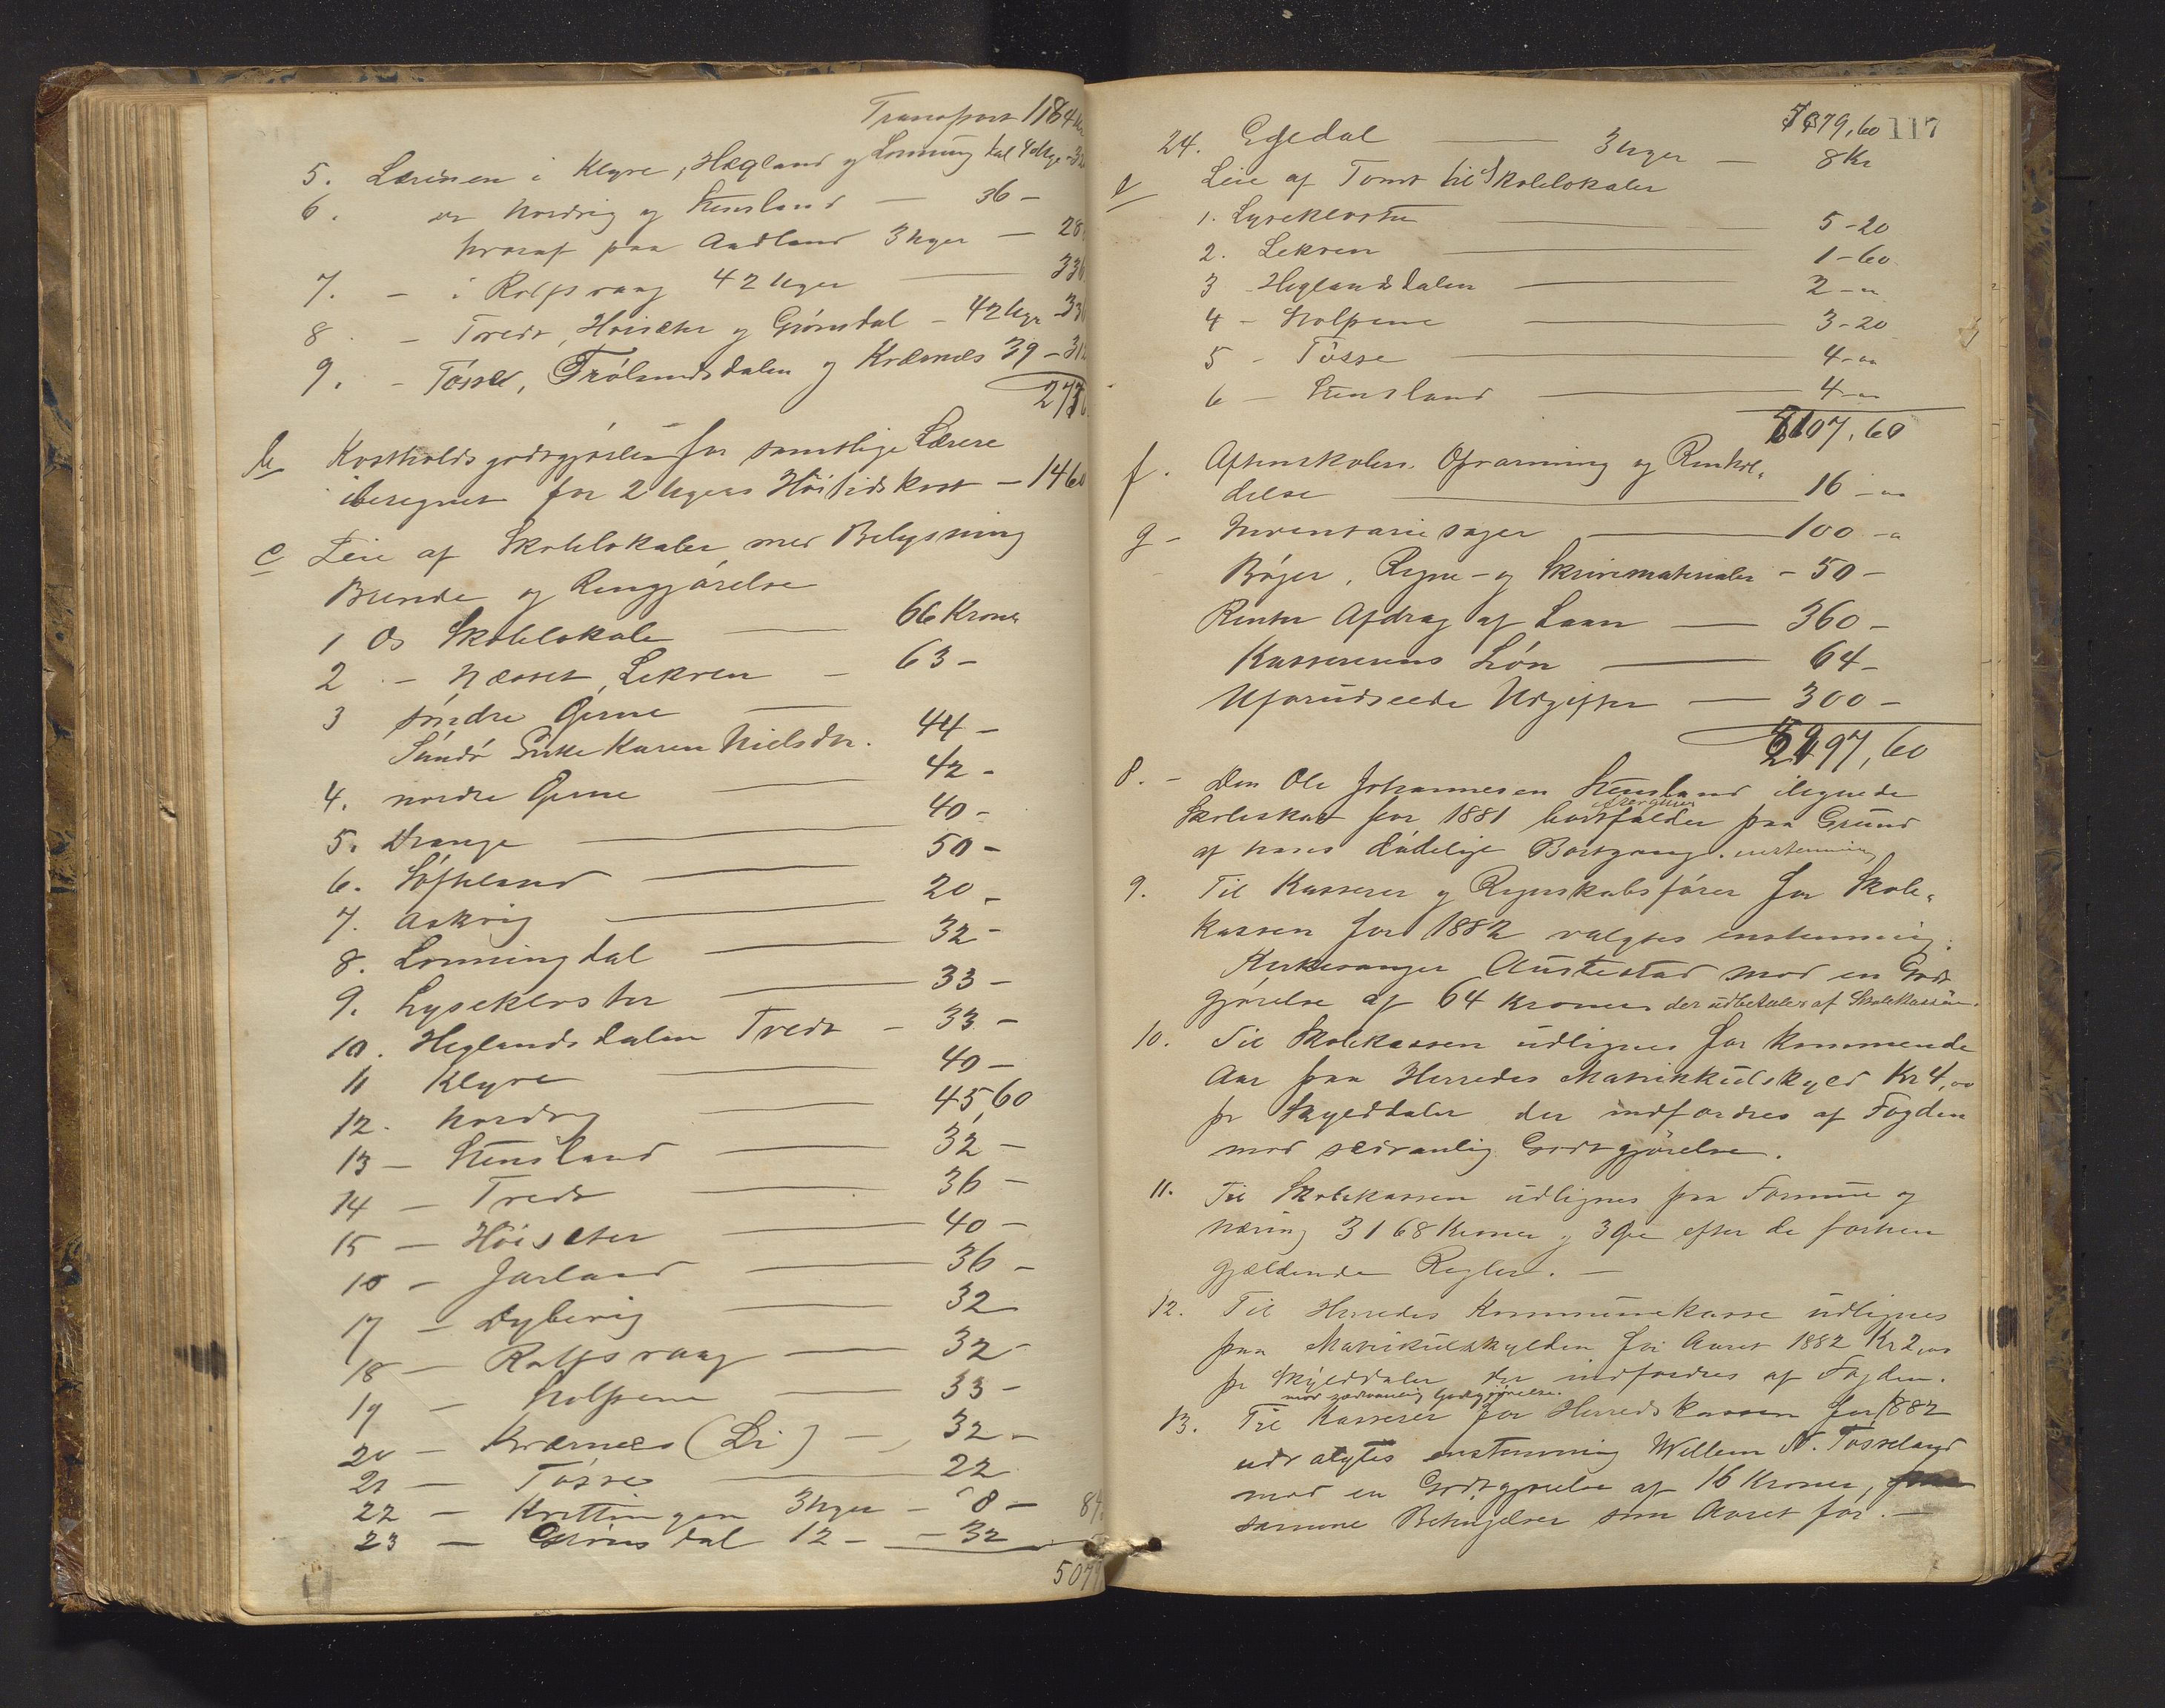 Transport 1184 Kr
5. Læreren i Klyve, Hægland og Lønning dal 40 Uge - 32
6. " Nordvig og Stensland — 36 -
hvoraf paa Aadland 3 Uger — 28
7. - i Rolfsvaag 42 Uger — 336
8 - Tvedt, Høisæter og Grønsdal - 42 Uger - 33
9. - Tøsse, Trolundsdalen og Kværnes 39 - 312
27
b Kostholdsgodtgjørelse for samtlige Lærere
iberegnet for 2 Ugers Høitidskost - 1460
c Leie af Skolelokaler med Belysning
Brænde og Rengjørelse
1 Os Skolelokale — 66 Kroner
2 - Næsset, Lekven - 63 -
3 søndre Øerne
Sundø Enke Karen Nielsdtr. 44 -
4. nordre Øerne — 42 -
5. Drange — 40 -
6. Søfteland — 50 -
7. Askvig — 20 -
8. Lønningdal — 32 -
9. Lysekloster — 33 -
10. Heglandsdalen Tvedt - 33 -
11 Klyve — 40 -
12. Nordvig — 45,60
13 - Stensland — 32 -
14 - Tvedt — 36 -
15 - Høisæter — 40 -
16 - Jarland — 36 -
17 - Dybevig — 32
18 - Rolfsvaag — 32 -
19 - Kolpene — 33 -
20 - Kværnees (Li) - 32 -
21 - Tøsse — 22
22 - Kvittingen 3 Uger - 8 -
23 - Grønsdal 12 - - 32
507
5079,60 117
24. Egedal — 3 Uger — 8 Kr
e Leie af Tomt til Skolelokaler
1. Lysekloster — 5-20
2. Lekven — 1-60
3 - Heglandsdalen — 2 - "
4 - Kolpene — 3-20
5 - Tøsse — 4 - "
6 - Stensland — 4 - "
5107,60
f. Aftenskolers Opvarming og Renhol-
delse — 16 - "
g - Inventariesager — 100 - "
Bøger, Regne- og Skrivematerialer - 50 -
Renter Afdrag af Laan — 360 -
Kassererens Løn — 64 -
Uforudseede Udgifter — 300 -
97,60
8. - Den Ole Johannesen Stensland ilignede
Skoleskat for 1881 bortfalder paa Grund
af hans dødelige Bortgang. enstemmig
9. Til Kasserer og Regnskabsfører for Skole-
kassen for 1882 valgtes enstemmig
Kirkesanger Austestad mod en Godt
gjørelse af 64 Kroner der udbetales af Skolekassen.
10. Til Skolekassen udlignes for kommende
Aar paa Herredes Matrikkulskyld Kr 4,00
pr Skylddaler der indfordres af Fogden
mod sedvanlig Godtgjørelse.
11. Til Skolekassen udlignes paa Formue og
Næring 3168 Kroner og 3 Øre efter de forhen
gjældende Regler. —
12. Til Herredes Kommunekasse udlignes
paa Matrikulskylden for Aaret 1882 Kr 2,00
pr Skylddaler der indfordres af Fogden.
mod sædvanlig Godtgjørelse.
13. Til Kasserer for Herredskassen for 1882
udvalgtes enstemmig Willem N. Tøsseland
mod en Godtgjørelse af 16 Kroner,
samme Betingelser som Aaret før. —